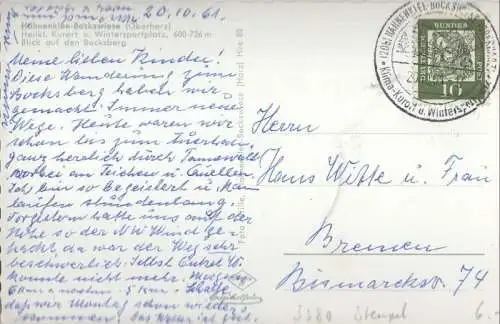 20.10.61.
Hahnenklee-Bockswiese (Oberharz)
Heilkl. Kurort u. Wintersportplatz, 600-726 m
Blick auf den Bocksberg
Meine lieben Kinder!
Diese Wanderung zum
Bocksberg haben wir
gemacht. Immer neue
Wege. Heute waren wir
schon bis zum Auerhahn,
ganz herrlich durch Tannenwald
vorbei an Teichen u. Quellen.
Ich bin so begeistert u. kann
laufen stundenlang.
Vorgestern hatte uns auf der
Höhe so der NW Wind ge-
packt, da war der Weg sehr
beschwerlich. Selbst Onkel
konnte nicht mehr. Morgen
daß wir Montag schon wieder
kommen.
(20b) HAHNENKLEE-BOCKSWIESE
Klima-Kurort u. Winterspl.
DEUTSCHE BUNDESPOST
10
Herrn
Hans Witte u. Frau
Bremen
Bismarckstr. 74
3380 Stempel
6.-